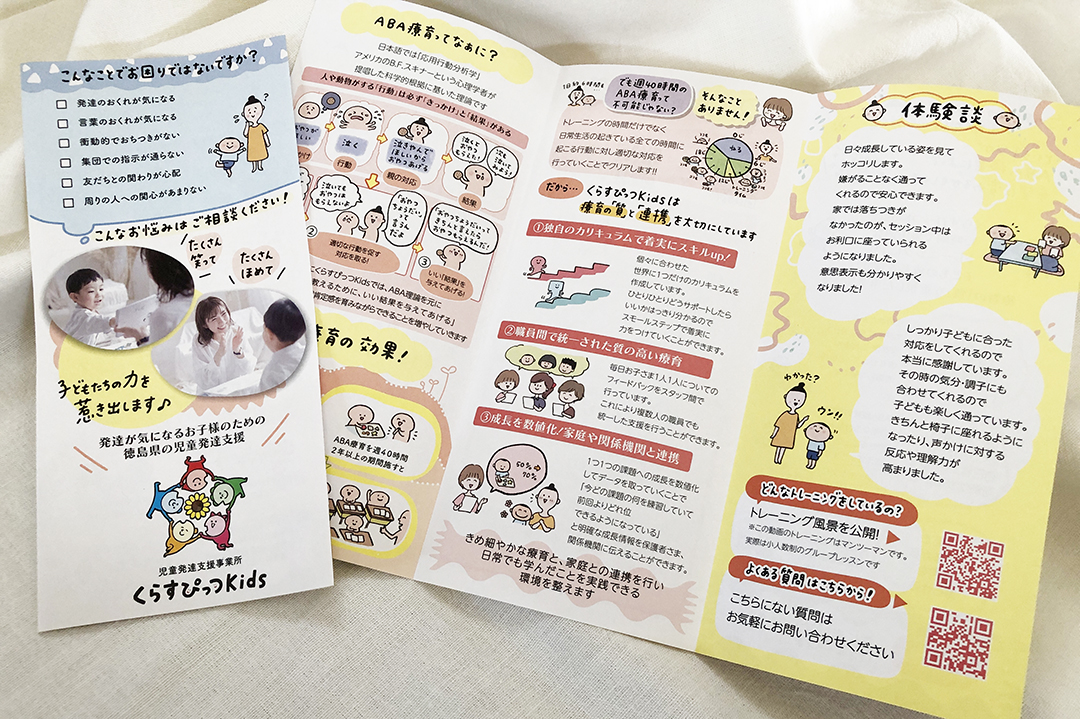 こんなことでお困りではないですか?
発達のおくれが気になる
言葉のおくれが気になる
衝動的でおちつきがない
集団での指示が通らない
友だちとの関わりが心配
周りの人への関心があまない
こんなお悩みはご相談ください!
たくさん
笑って
たくさん
ほめて
子どもたちの力を
惹き出します♪
発達が気になるお子様のための
徳島県の児童発達支援
児童発達支援事業所
くらすぴっつKids
ABA療育ってなあに?
日本語では「応用行動分析学」
アメリカのB.F.スキナーという心理学者が
提唱した科学的根拠に基いた理論です
人や動物がする「行動」は必ず「きっかけ」と「結果」がある
泣く
行動
泣きやんで
ほしいから
おやつあげる
親の対応
泣いたら
おやつ
もらえた!
次も
泣いて
もらおう!
結果
泣いても
おやつは
もらえないよ
「おやつ
ちょうだい」
って
言うん
だよ
「おやつちょうだい」って
きちんと言えたら
おやつもらえるんだ!
②
適切な行動を促す
対応を取る!
③
いい「結果」を
与えてあげる!
くらすぴっつKidsでは、ABA理論を元に
教えるために、いい結果を与えてあげる」
肯定感を育みながらできることを増やしていきます
療育の効果!
ABA療育を週40時間
2年以上の期間施すと
でも週40時間の
ABA療育って
不可能じゃない?
そんなこと
ありません!
トレーニングの時間だけでなく
日常生活の起きている全ての時間に
起こる行動に対し適切な対応を
行っていくことでクリアします!!
ねる
トレーニング
タイム
だから…
くらすぴっつKidsは
療育の「質」と「連携」を大切にしています
①独自のカリキュラムで着実にスキルup!
個々に合わせた
世界に1つだけのカリキュラムを
作成しています。
ひとりひとりどうサポートしたら
いいかはっきり分かるので
スモールステップで着実に
力をつけていくことができます。
②職員間で統一された質の高い療育
毎日お子さま1人1人についての
フィードバックをスタッフ間で
行っています。
これにより複数人の職員でも
統一した支援を行うことができます。
③成長を数値化!家庭や関係機関と連携
50%
70%
1つ1つの課題への成長を数値化
してデータを取っていくことで
「今どの課題の何を練習していて
前回よりどれ位
できるようになっている」
と明確な成長情報を保護者さま、
関係機関に伝えることができます。
きめ細やかな療育と、家庭との連携を行い
日常でも学んだことを実践できる
環境を整えます
体験談
日々成長している姿を見て
ホッコリします。
嫌がることなく通って
くれるので安心できます。
家では落ちつきが
なかったのが、セッション中は
お利口に座っていられる
ようになりました。
意思表示も分かりやすく
なりました!
しっかり子どもに合った
対応をしてくれるので
本当に感謝しています。
その時の気分・調子にも
合わせてくれるので
子どもも楽しく通っています。
きちんと椅子に座れるように
なったり、声かけに対する
反応や理解力が
高まりました。
わかった?
ウン!!
どんなトレーニングをしているの?
トレーニング風景を公開!
※この動画のトレーニングはマンツーマンです。
実際は小人数制のグループレッスンです
よくある質問はこちらから!
こちらにない質問は
お気軽にお問い合わせください